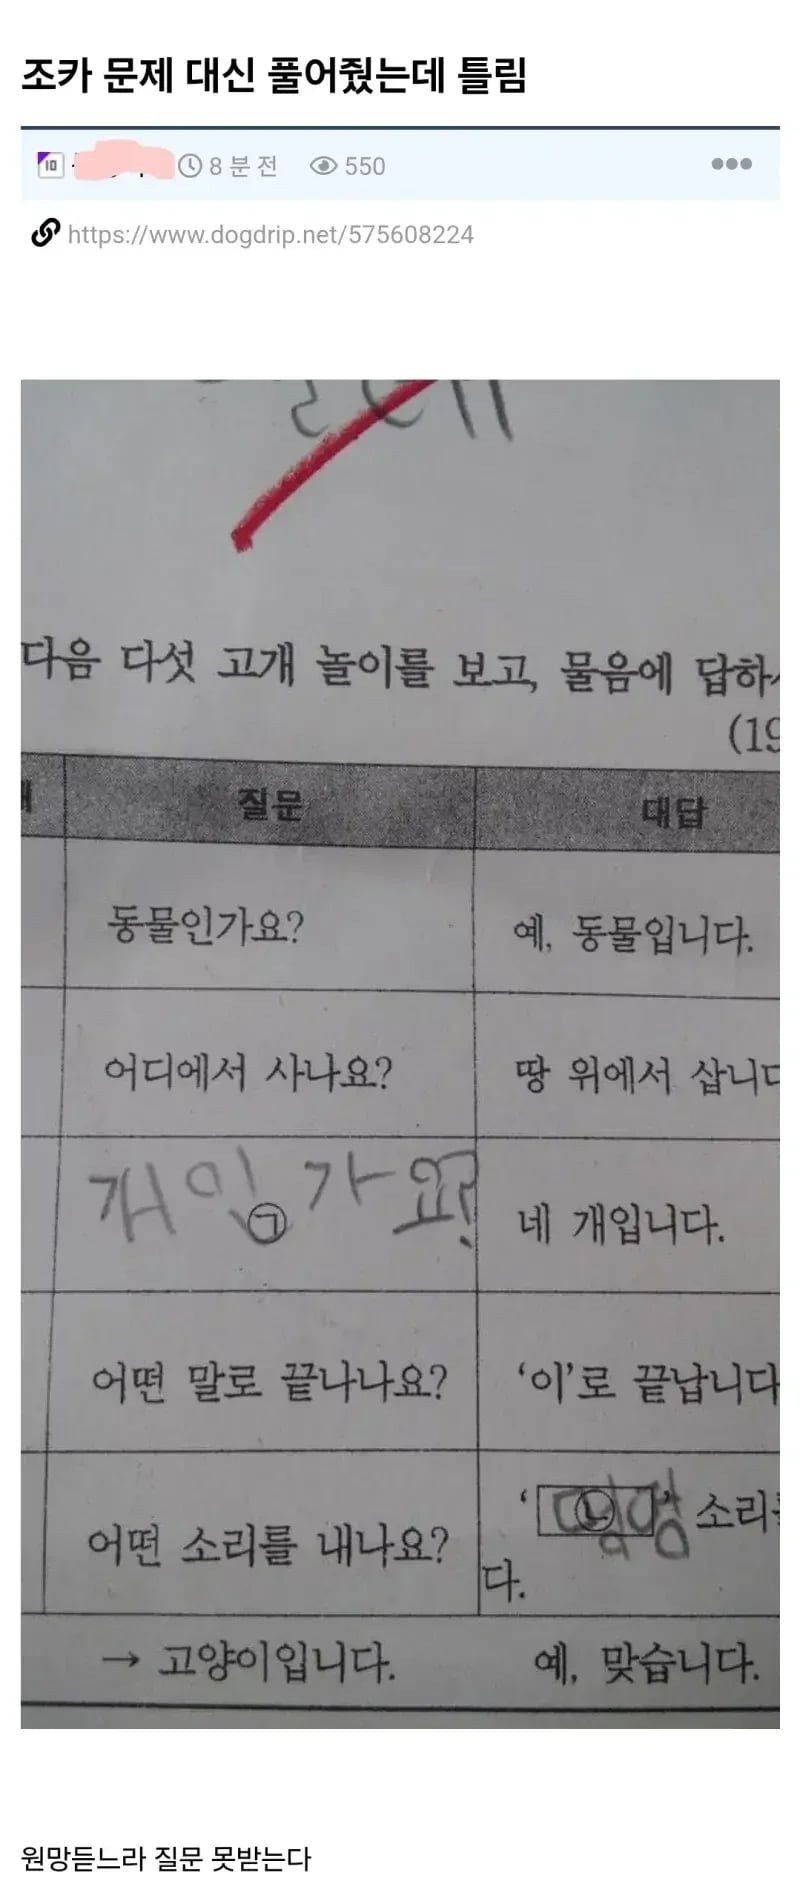 조카 문제 대신 풀어줬는데 틀림
10
8 분 전
550
https://www.dogdrip.net/575608224
다음 다섯 고개 놀이를 보고, 물음에 답하
(19
질문 대답
동물인가요? 예, 동물입니다.
어디에서 사나요? 땅 위에서 삽니다
개인가요? ㉠ 네 개입니다.
어떤 말로 끝나나요? ‘이’로 끝납니다
어떤 소리를 내나요? ‘㉡ ’ 소리를
다.
→ 고양이입니다. 예, 맞습니다.
원망듣느라 질문 못받는다